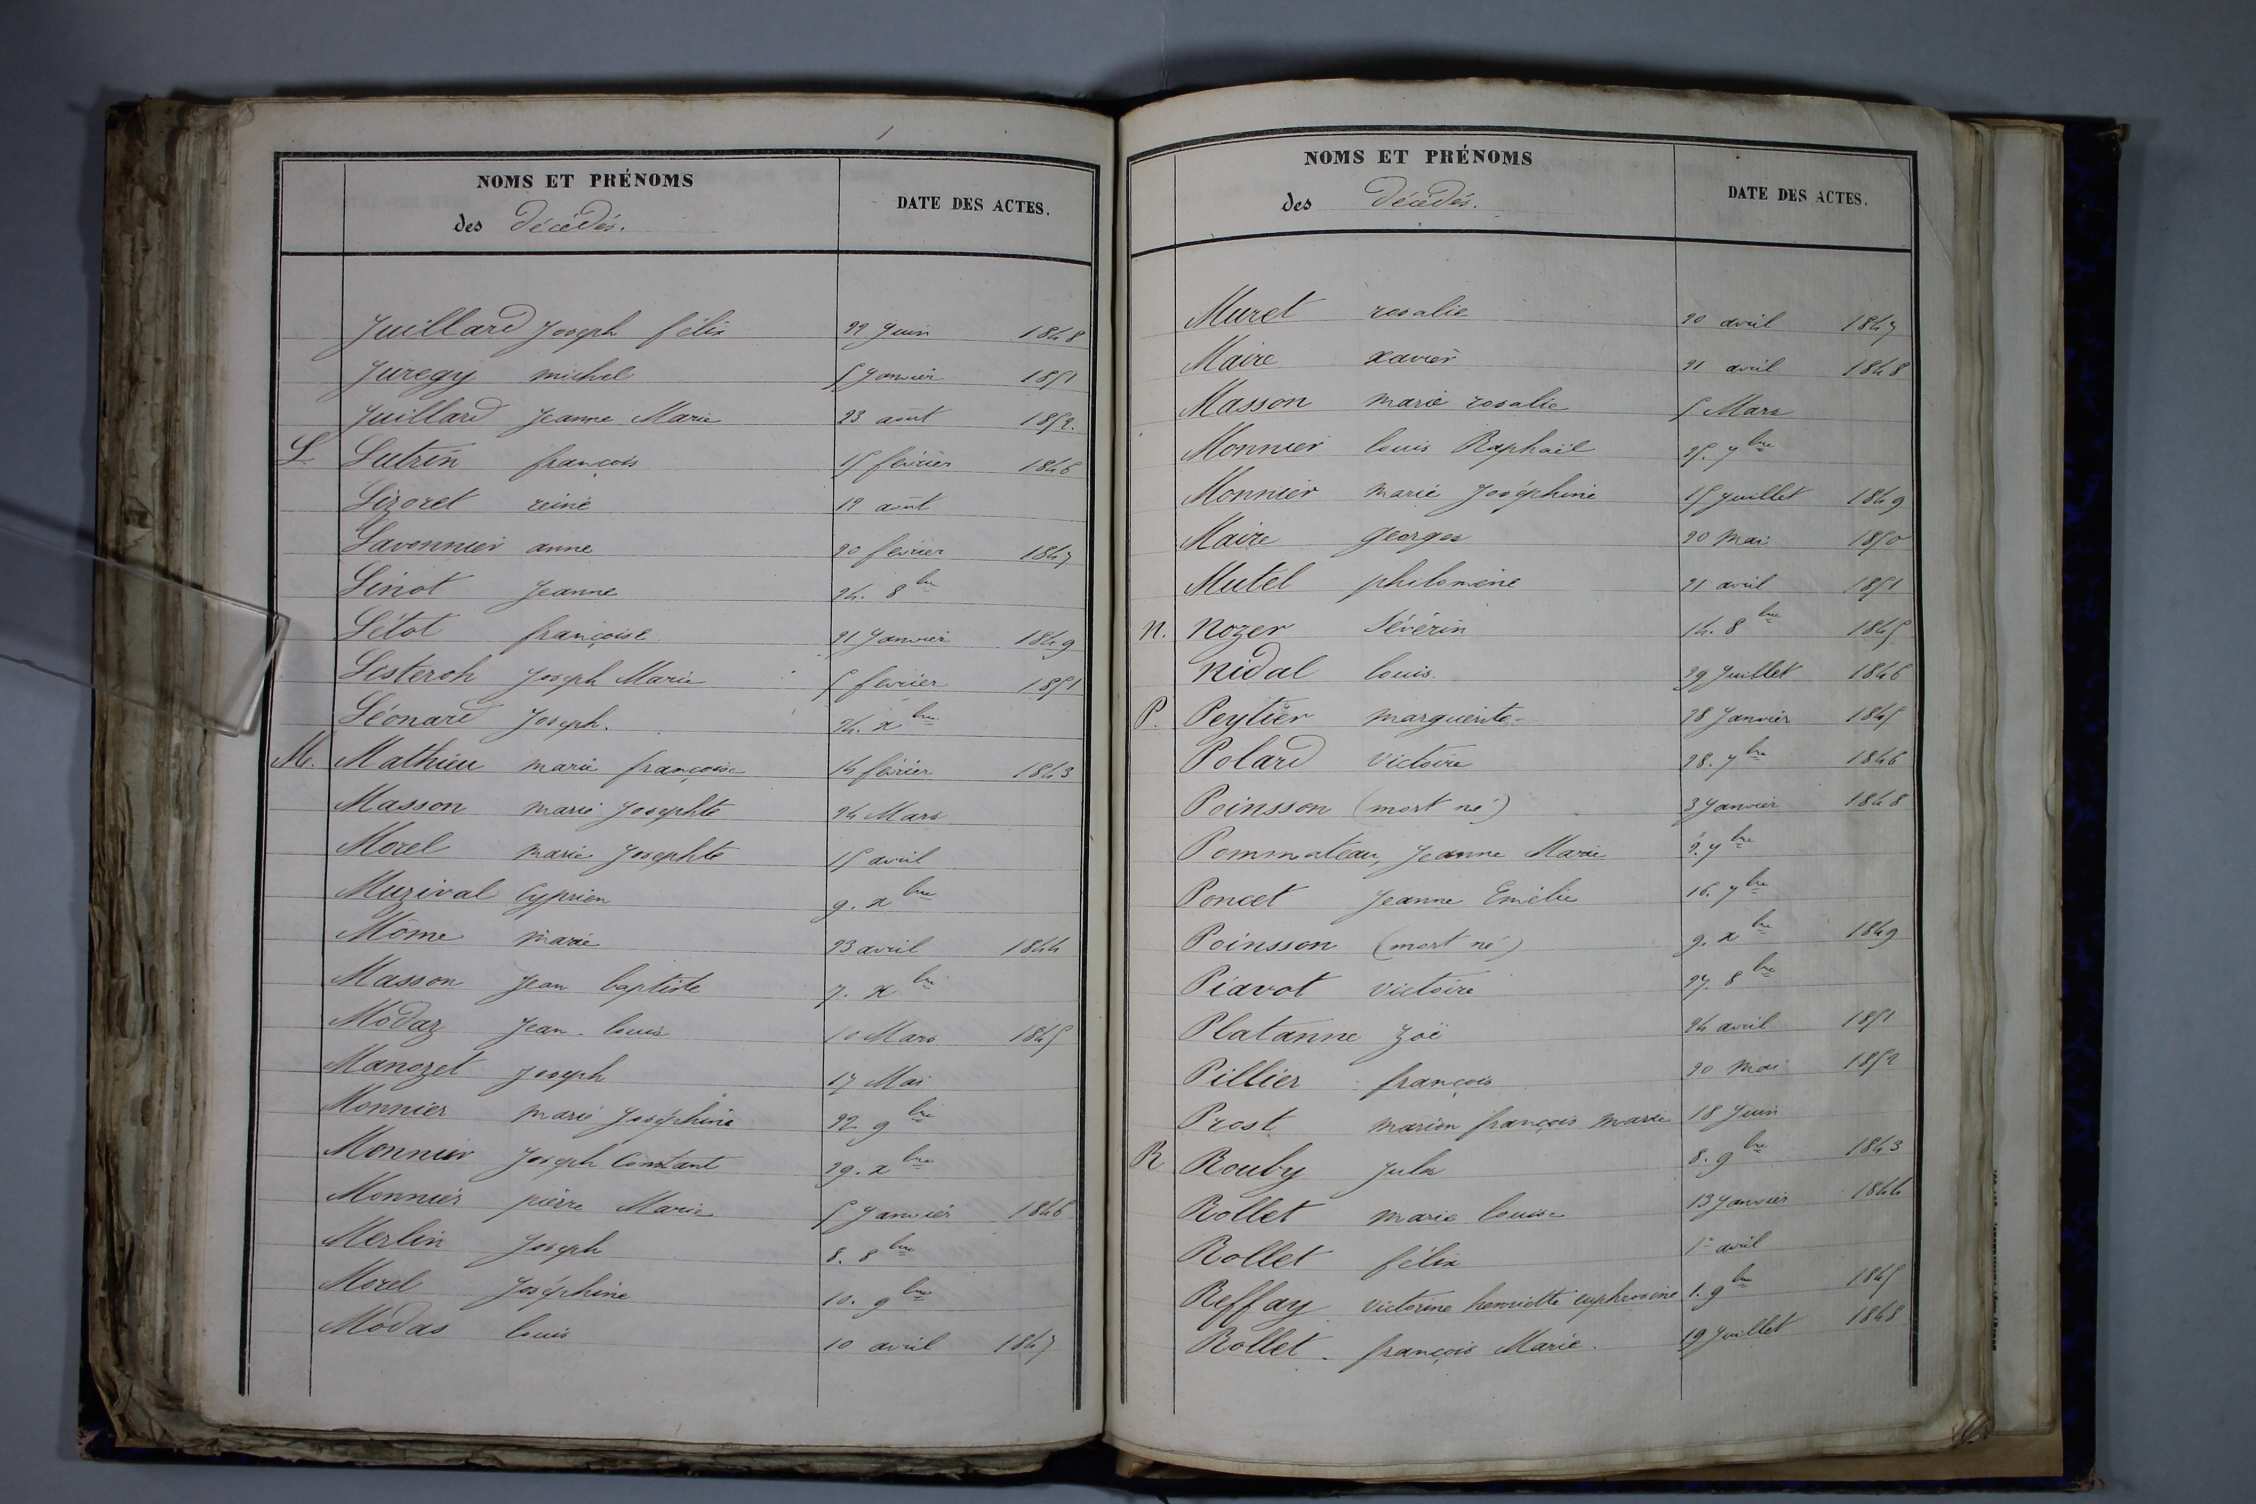 NOMS ET PRÉNOMS
des Décédés.
DATE DES ACTES.
Juillard Joseph félix 22 Juin 1848
Juregy michel 5 Janvier 1851
Juillard Jeanne Marie 23 aout 1852.
L Lutrin françois 15 février 1846
Lizoret reine 12 août
Lavonnier anne 20 février 1847
Linot Jeanne 24. 8bre
Létot françoise 21 Janvier 1849
Lesteroh Joseph Marie 5 février 1851
Léonard Joseph. 24. xbre
M. Mathieu marie françoise 14 février 1843
Masson marie Josephte 24 Mars
Morel marie Josephte 15 avril
Muzival Cyprien 9. xbre
Mome marie 23 avril 1844
Masson Jean baptiste 7. xbre
Modaz Jean louis 10 Mars 1845
Manozet Joseph 17 Mai
Monnier marie Joséphine 22 9bre
Monnier Joseph Constant 29. xbre
Monnier pierre Marie 5 Janvier 1846
Merlin Joseph 8. 8bre
Morel Joséphine 10. 9bre
Modas louis 10 avril 1847
NOMS ET PRÉNOMS
des Décédés.
DATE DES ACTES.
Muret rosalie 20 avril 1847
Maire xavier 21 avril 1848
Masson marie rosalie 5 Mars
Monnier louis Raphaël 25. 7bre
Monnier marie Joséphine 15 Juillet 1849
Maire georges 20 Mai 1850
Mutel philomène 21 avril 1851
N. Nozer Sévérin 14. 8bre 1845
Nidal louis. 29 Juillet 1846
P. Peytier marguerite 28 Janvier 1845
Polard Victoire 28. 7bre 1846
Poinsson (mort né) 3 Janvier 1848
Pommateau, Jeanne Marie 2. 7bre
Poncet Jeanne Emélie 16. 7bre
Poinsson (mort né) 9. xbre 1849
Piavot victoire 27. 8bre
Platanne Zoë 24 avril 1851
Pillier françois 20 Mai 1852
Prost marion françois marie 18 Juin
R Rouby Jules 8. 9bre 1843
Rollet marie louise 13 Janvier 1844
Rollet félix 1er avril
Reffay victorine henriette euphrosine 1. 9bre 1845
Rollet françois Marie 19 Juillet 1848